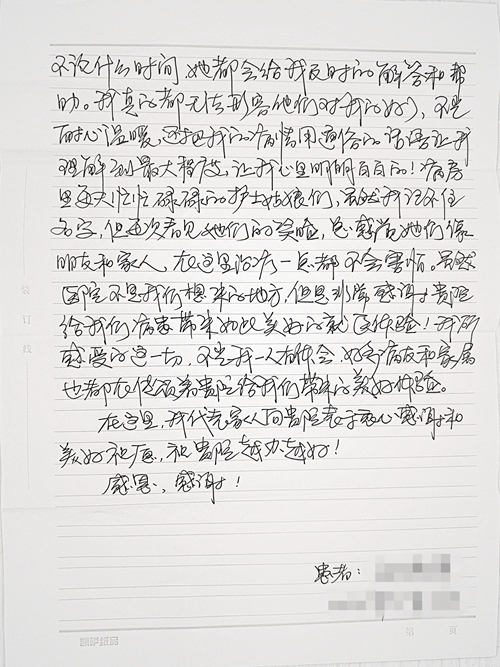 不论什么时间,她都会给我及时的解答和帮
助。我真的都无法形容他们对我的好,不光
耐心温暖,还把我的病情用通俗的话语让我
理解到最大程度,让我心里明明白白的!病房
里每天忙忙碌碌的护士姑娘们,虽然我记不住
名字,但每次看见她们的笑脸,总感觉她们像
朋友和家人,在这里治病一点都不会害怕。虽然
医院不是我们想来的地方,但是非常感谢贵院
给我们病患带来如此美好的就医体验!我所
感受的这一切,不光我一人有体会,好多病友和家属
也都在传颂着贵院给我们带来的美好体验。
在这里,我代表家人向贵院表示衷心感谢和
美好祝愿,祝贵院越办越好!
感恩、感谢!
患者:
装订线
第 页